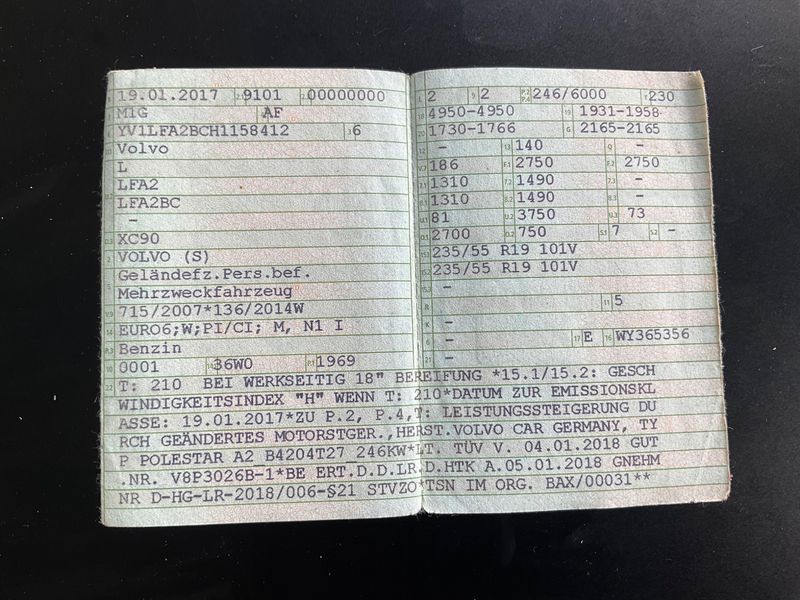 19.01.2017 9101 00000000
M1G AF
YV1LFA2BCH1158412 6
Volvo
L
LFA2
LFA2BC
–
XC90
VOLVO (S)
Geländefz.Pers.bef.
Mehrzweckfahrzeug
715/2007*136/2014W
EURO6;W;PI/CI; M, N1 I
Benzin
0001 36W0 1969
2 2 246/6000 230
4950-4950 1931-1958
1730-1766 G 2165-2165
– 140 –
186 2750 2750
1310 1490 –
1310 1490 –
81 3750 73
2700 750 7 –
235/55 R19 101V
235/55 R19 101V
–
R 11 5
K –
6 – 17 E 16 WY365356
21 –
T: 210 BEI WERKSEITIG 18" BEREIFUNG *15.1/15.2: GESCH
WINDIGKEITSINDEX "H" WENN T: 210*DATUM ZUR EMISSIONSKL
ASSE: 19.01.2017*ZU P.2, P.4,T: LEISTUNGSSTEIGERUNG DU
RCH GEÄNDERTES MOTORSTGER.,HERST.VOLVO CAR GERMANY, TY
P POLESTAR A2 B4204T27 246KW*LT. TÜV V. 04.01.2018 GUT
.NR. V8P3026B-1*BE ERT.D.D.LR.D.HTK A.05.01.2018 GNEHM
NR D-HG-LR-2018/006-§21 STVZO*TSN IM ORG. BAX/00031**